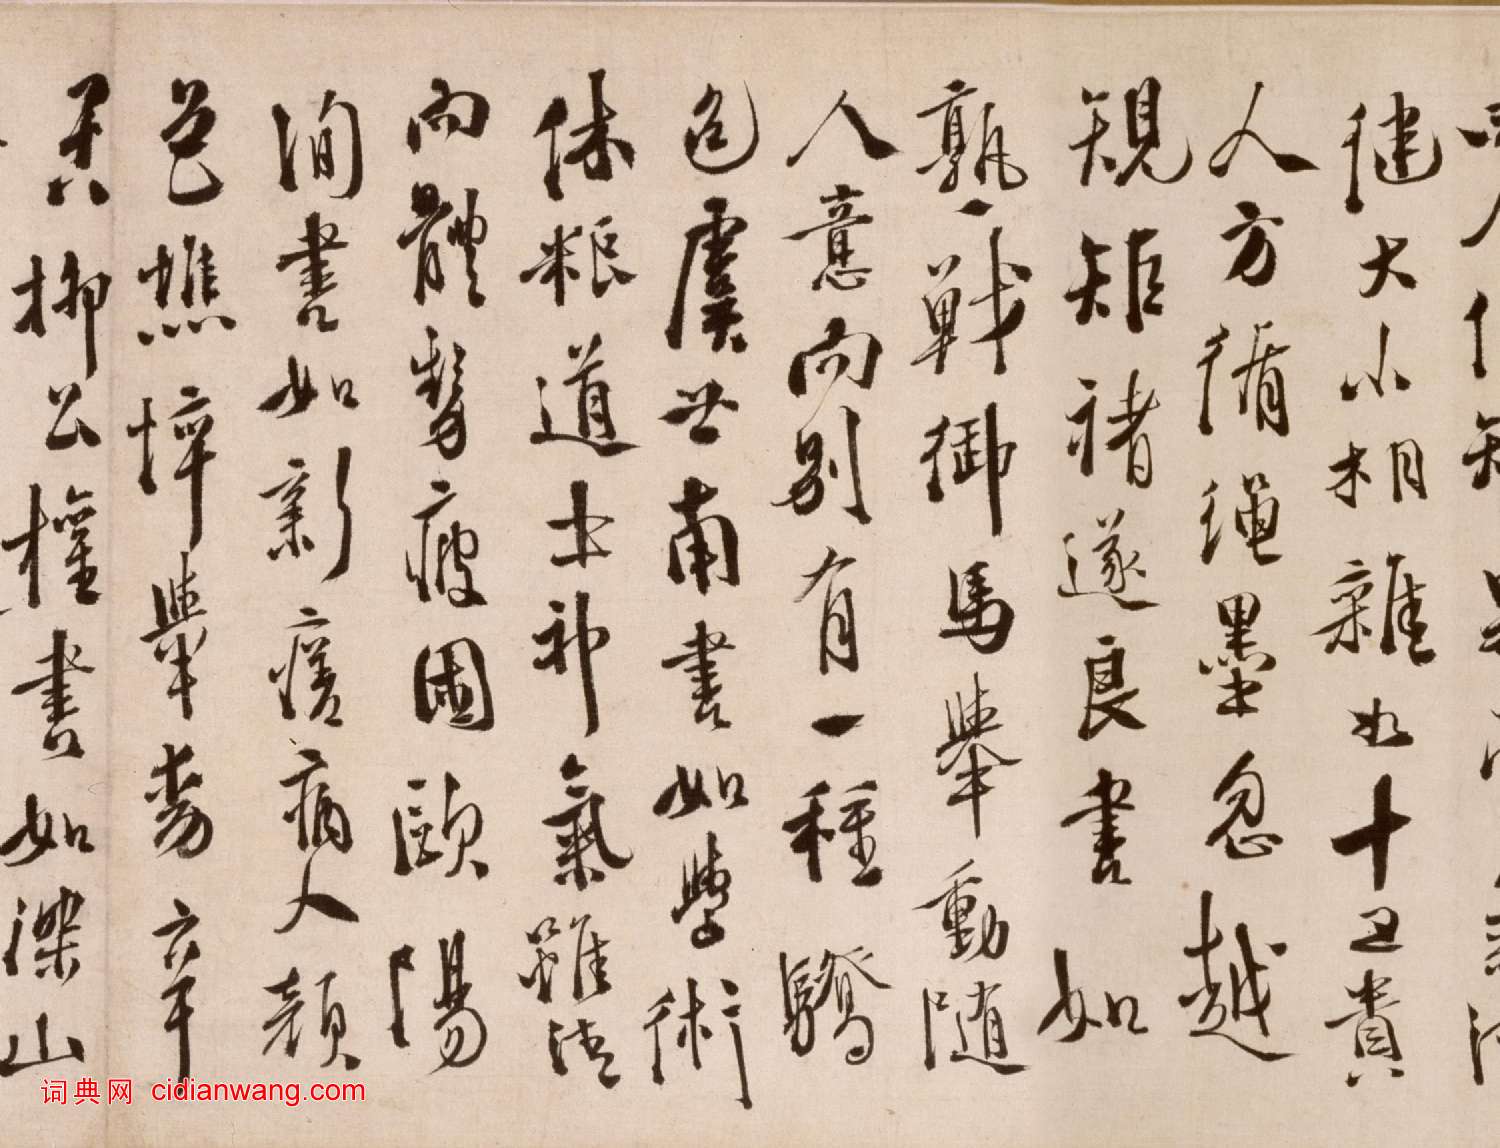 健大小相雜如十五貴
人方循繩墨忽越
規矩褚遂良書如
熟戰御馬舉動隨
人意而別有一種驕
色虞世南書如學術
休粮道士神氣雖清
而體勢疲困歐陽
詢書如新瘥病人顏
色憔悴舉辛
柳公權書如深山
词典网 cidianwang.com